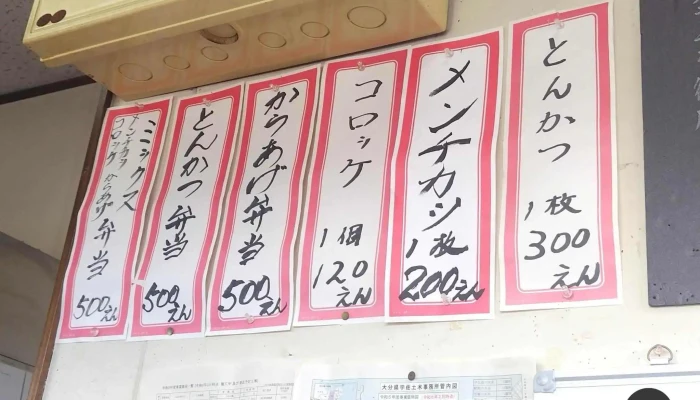 とんかつ
1枚
300
えん
メンチカツ
1枚
200えん
コロッケ
1個
120
えん
からあげ弁当
500えん
とんかつ弁当
500えん
ミックス
メンチカツ
コロッケ からあげ 弁当
500えん
大分県宇佐土木事務所管内図